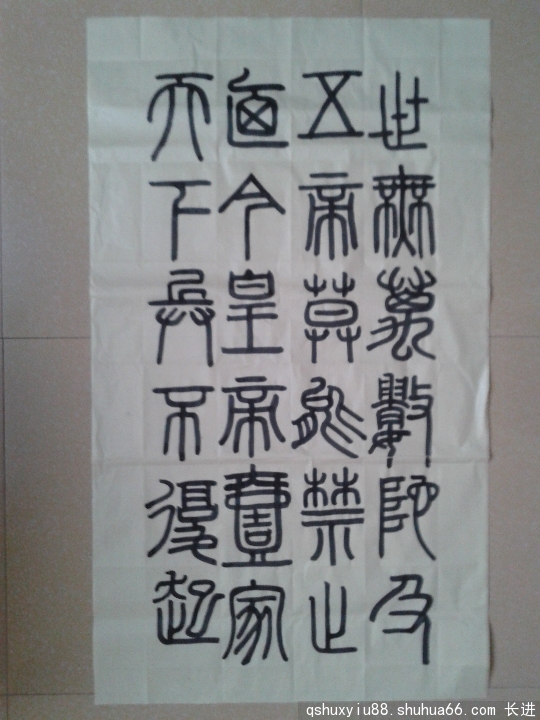 世無萬數陀及
五帝莫能禁止
迺今皇帝壹家
天下兵不復起
qshuxyiu88.shuhua66.com 长进